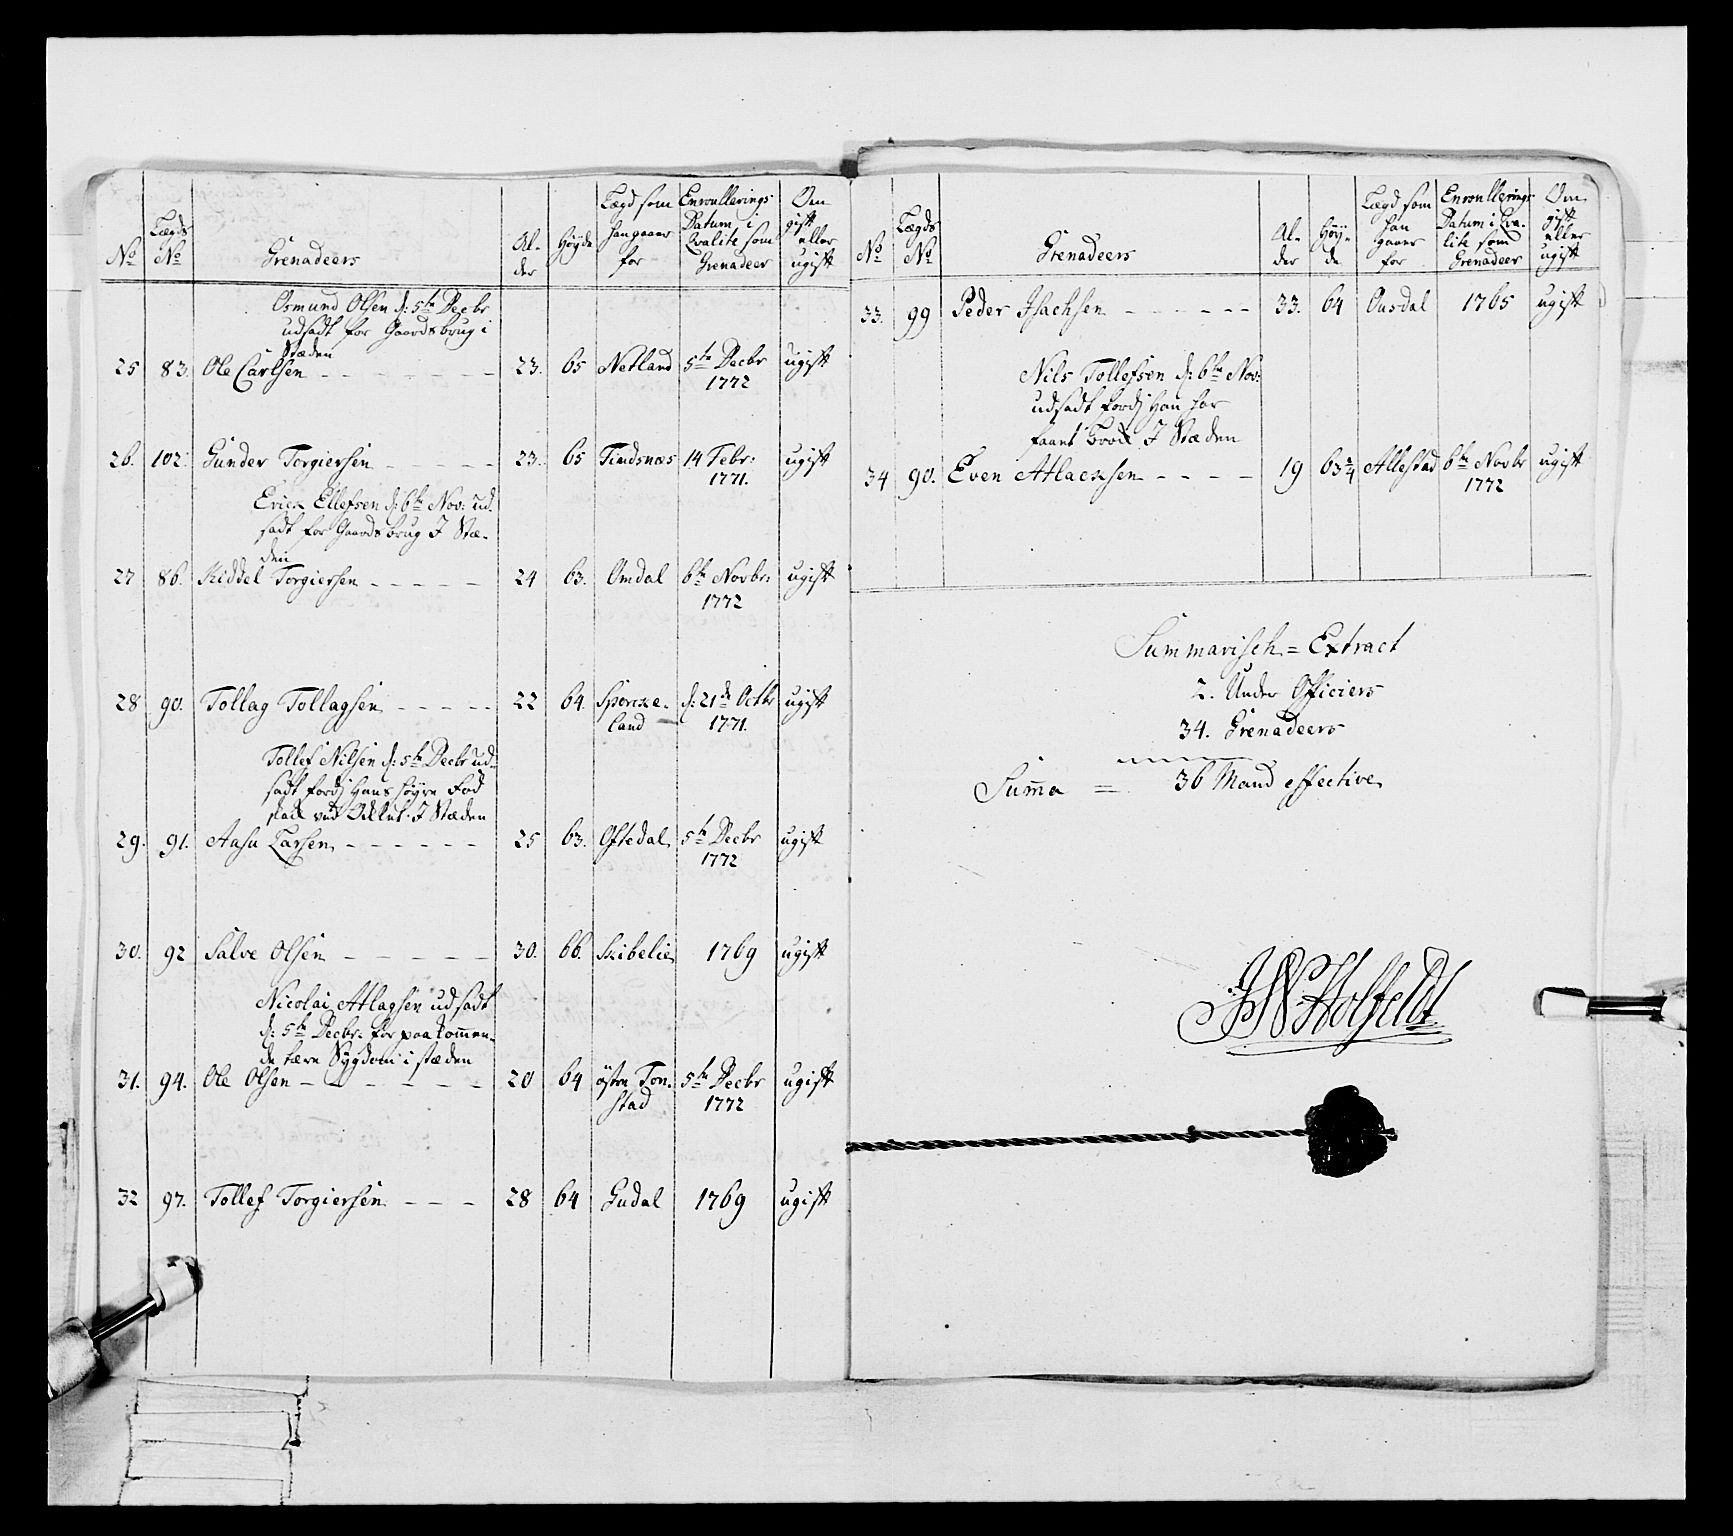 No | Lægds No | Grenadeers | Al-der | Høyde | Lægd som han gaaer for | Enroullerings Datum i Qvalite som Grenadeer | Om gift eller ugift
Osmund Olsen d: 5te Decbr
udsadt for Gaardsbrug i
Stæden
25 | 83. | Ole Carlsen | 23. | 65 | Netland | 5te Decbr 1772 | ugift
26. | 102. | Gunder Torgiersen | 23. | 65 | Tindsnæs | 14 Febr: 1771. | ugift
Erick Ellefsen d: 6te Nov: ud
sadt for Gaardsbrug J Stæ-
den
27 | 86. | Kiddel Torgiersen | 24 | 63. | Omdal | 6te Novbr: 1772 | ugift
28 | 90. | Tollag Tollagsen | 22 | 64. | Spocke-land | d: 21de Octbr 1771. | ugift
Tollef Nilsen d: 5te Decbr ud-
sadt fordj Hans høyre Fod
ved J Stæden
29. | 91. | Aasu Larsen | 25 | 63. | Oftedal | 5te Decbr 1772 | ugift
30. | 92 | Salve Olsen | 30. | 66. | Skibelie | 1769 | ugift
Nicolai Atlagsen udsadt
d: 5te Decbr: for paakommen-
de Sygdom i stæden
31. | 94. | Ole Olsen | 20 | 64 | østre Ton-stad | 5te Decbr 1772 | ugift
32 | 97. | Tollef Torgiersen | 28 | 64 | Gudal | 1769 | ugift
No | Lægds No | Grenadeers | Al-der | Høy-de | Lægd som han gaaer for | Enroullerings Datum i Qva-lite som Grenadeer | Om gift eller ugift
33. | 99 | Peder Jsachsen | 33. | 64 | Ousdal | 1765 | ugift
Nils Tollefsen d: 6te Nov:
udsadt fordj Han har
faaet J Stæden
34 | 90. | Even Atlacksen | 19 | 63 3/4 | Allestad | 6te Novbr 1772 | ugift
Summarisch = Extract
2. Under Officiers
34. Grenadeers
Summa = 36 Mand effective
Holfeldt